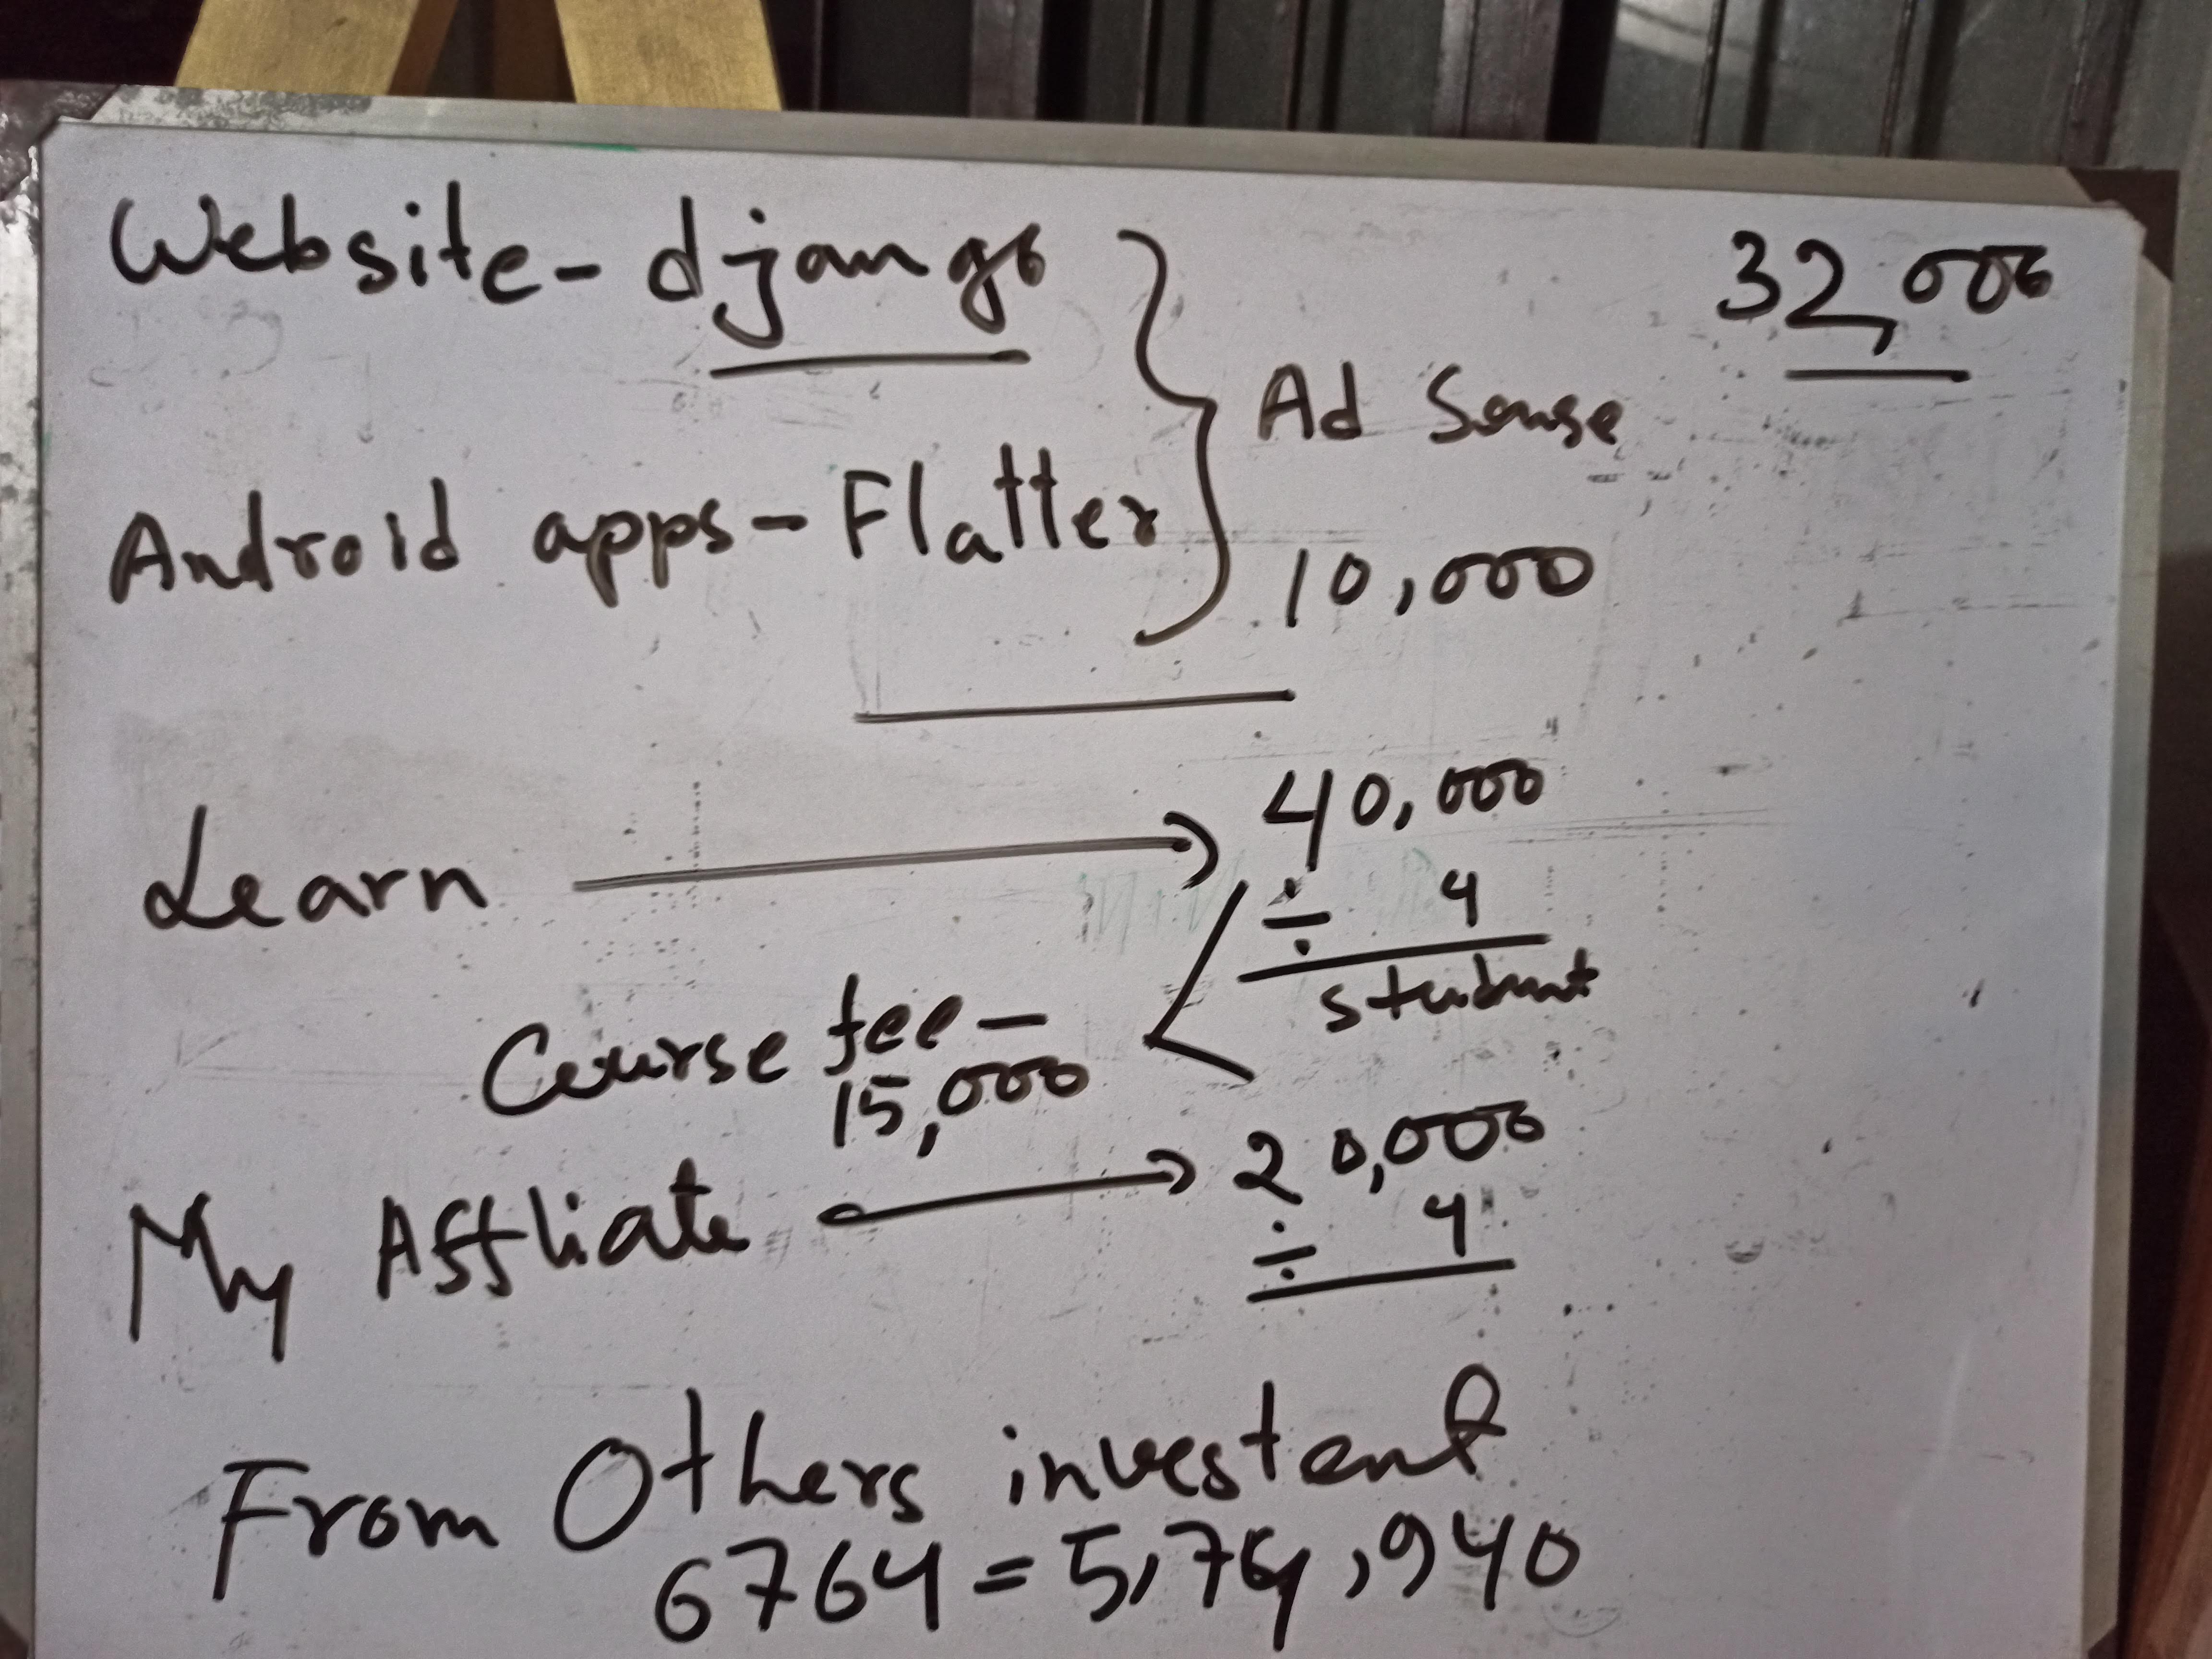 Website - django
32,000
Ad Sense
Android apps - Flatter
10,000
Learn → 40,000
÷ 4
student
Course fee -
15,000
My Affliate → 20,000
÷ 4
From Others investent
6764 = 5,74,940